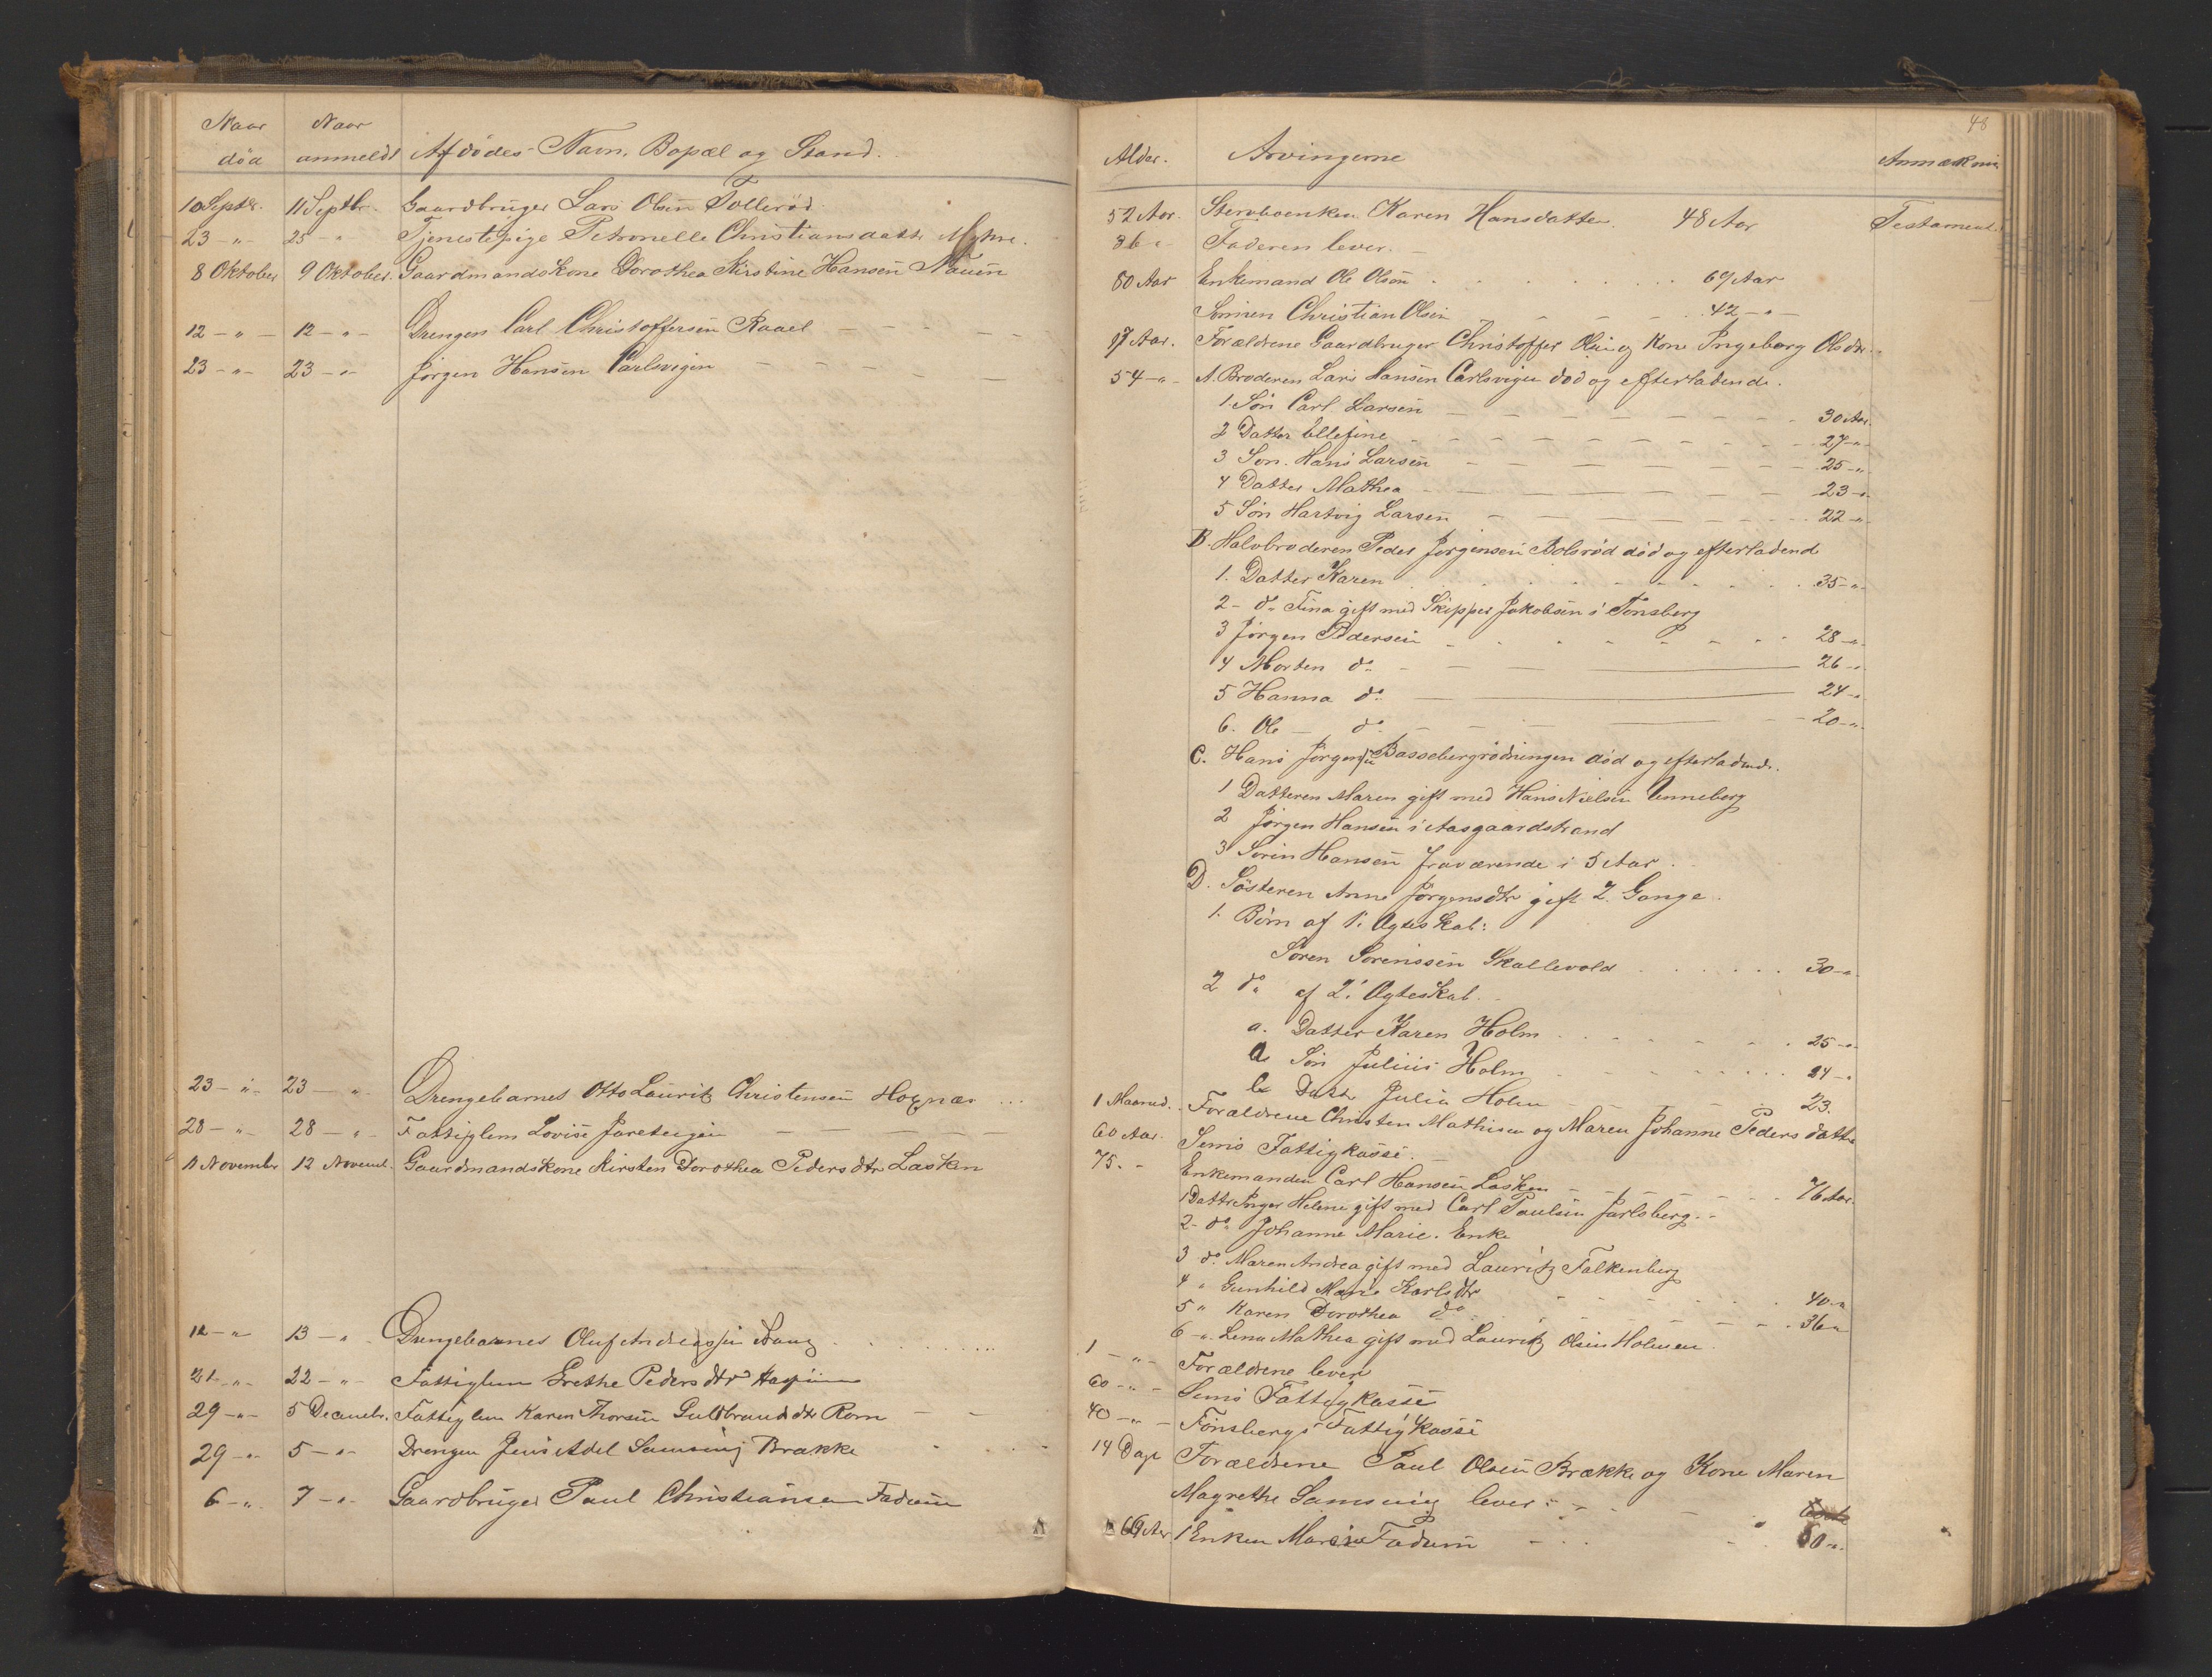 Naar Naar
död anmeldt Afdødes Navn, Bopæl og Stand.
10 Septbr. 11 Septbr. Gaardbruger Lars Olsen Tollerød
23 -"- 25 -"- Tjenestepige Petronelle Christiansdatter Myhre.
8 Oktober 9 Oktober. Gaardmandskone Dorothea Kirstine Hansen
12 -"- 12 -"- Drengen Carl Christoffersen Raael
23 -"- 23 -"- Jørgen Hansen Carlsvigen
23 -"- 23 -"- Drengebarnet Otto Lauritz Christensen
28 -"- 28 -"- Fattiglem Lovise
11 November 12 Novemb. Gaardmandskone Kirsten Dorothea Pedersdtr Lasken
12 -"- 13 -"- Drengebarnet Oluf Andreassen
21 -"- 22 -"- Fattiglem Grethe Pedersdtr
29 -"- 5 Decembr. Fattiglem Karen Thorsen Guldbrandsdtr Rom
29 -"- 5 -"- Drengen Jens Adel Samsing Brække
6 -"- 7 -"- Gaardbruger Paul Christiansen Fadum
48
Alder. Arvingerne Anmærkning
52 Aar. Stervboenken Karen Hansdatter 48 Aar Testament
36 " Faderen lever.
80 Aar Enkemand Ole Olsen 69 Aar
Sønnen Christian Olsen 42 -"-
17 Aar. Forældrene Gaardbruger Christoffer Olsen og Kone Ingeborg Olsdtr.
54 -"- A. Broderen Lars Hansen Carlsvigen død og efterladende.
1. Søn Carl Larsen 30 Aar.
2 Datter Ellefine 27 -"-
3 Søn. Hans Larsen 25 -"-
4 Datter Mathea 23 -"-
5 Søn Hartvig Larsen 22 -"-
B. Halvbroderen Peder Jørgensen Bolsrød død og efterladend
1. Datter Karen 35 -"-
2 - do Tina gift med Skipper Jakobsen i Tønsberg
3 Jørgen Pedersen 28 -"-
4 Morten do 26 -"-
5 Hanna do 24 -"-
6. Ole - do 20 -"-
C. Hans Jørgensen Bassebergrødningen død og efterladende.
1 Datteren Maren gift med Hans Nielsen Unneberg
2 Jørgen Hansen i Aasgaardstrand
3 Søren Hansen fraværende i 5 Aar.
D. Søsteren Anne Jørgensdtr gift 2 Gange.
1. Børn af 1. Ægteskab:
Søren Sørenssen Skallevold 30 -"-
2 do af 2. Ægteskab.
a. Datter Karen Holm 25 -"-
Søn Julius Holm 24 -"-
Dattr Julia Holm 23.
1 Maaned. Forældrene Christen Mathisen og Maren Johanne Pedersdatter
60 Aar. Sems Fattigkasse.
75. - Enkemanden Carl Hansen Lasken 76 Aar.
1 Dattr Inger Helene gift med Carl Paulsen Jarlsberg.
2 - do Johanne Marie. Enke
3 do Maren Andrea gift med Lauritz Falkenberg
4 " Gunhild Marie Karlsdtr 40 -"
5 " Karen Dorothea do 36 "
6 -"- Lena Mathea gift med Lauritz Olsen Holmen.
1 -"- Forældrene lever
60 -"- Sems Fattigkasse
40 -"- Tønsbergs Fattigkasse
14 Dage Forældrene Paul Olsen Brække og Kone Maren
Magrethe Samsing lever.
69 Aar 1 Enken Maria Fadum 50 -"-